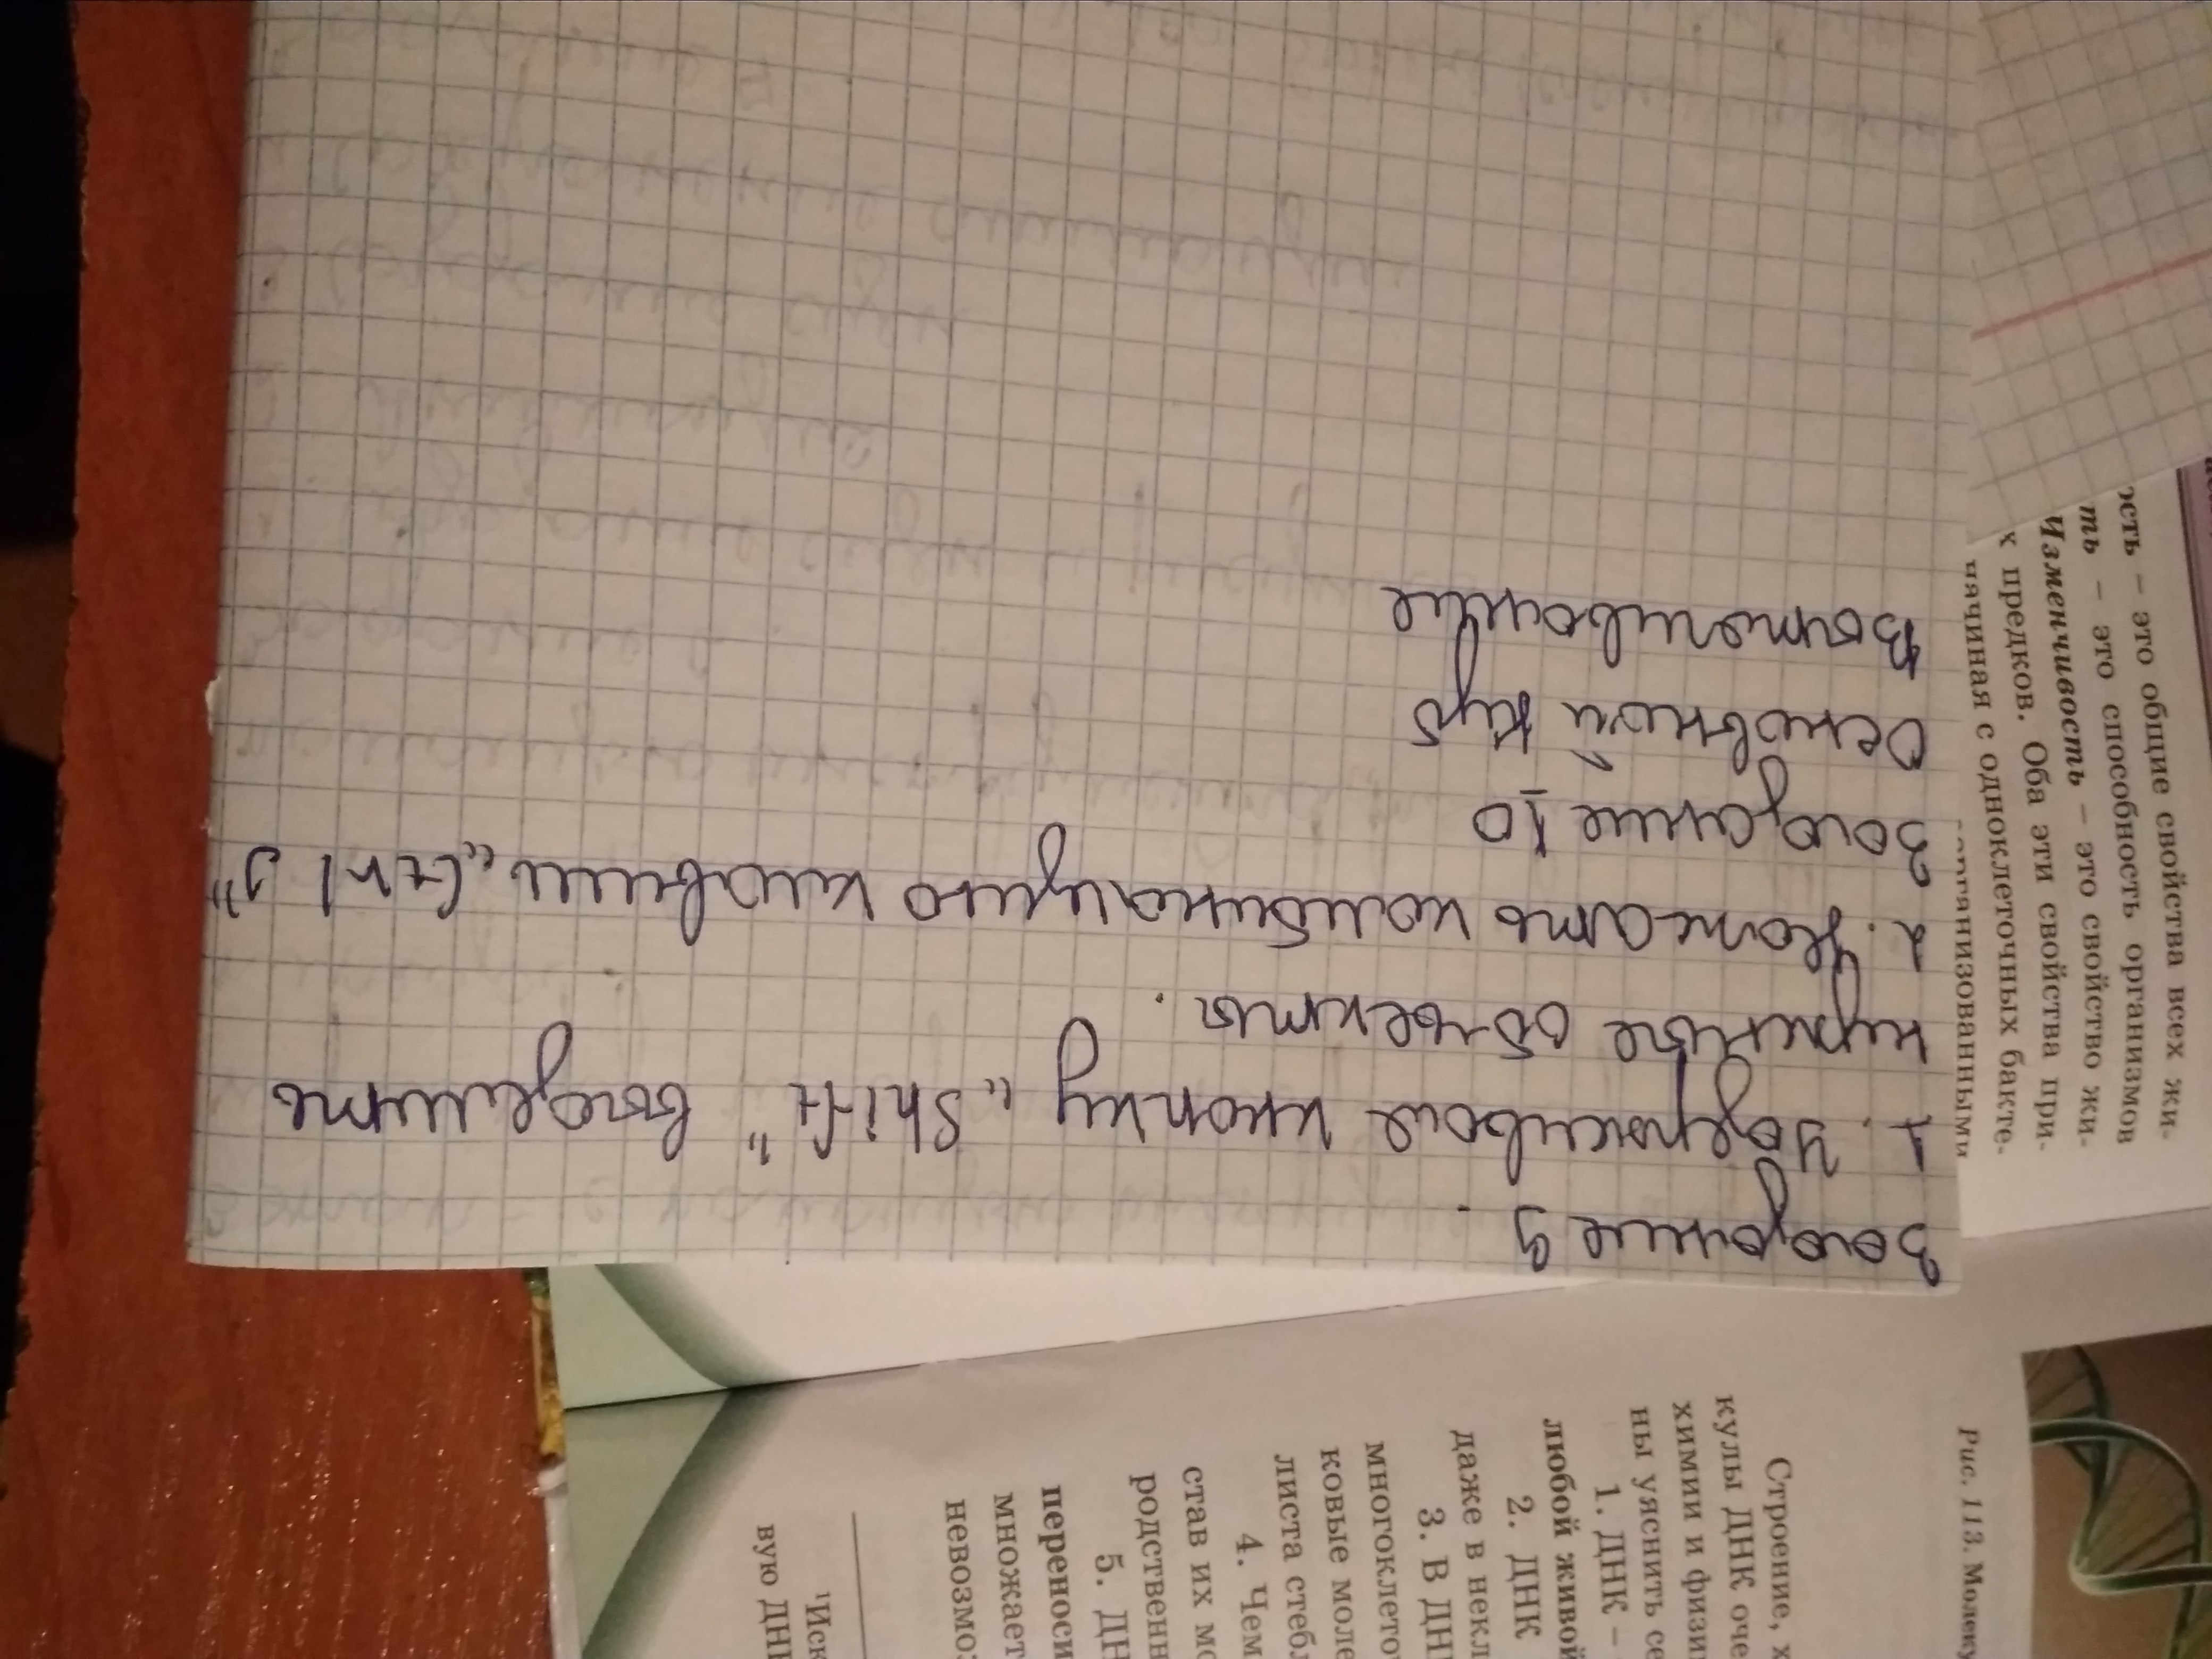 Задание 9.
1. Удерживая кнопку "Shift" выделить
нужные объекты.
2. Нажать комбинацию клавиш "Ctrl J"
Задание 10
Основной куб
ость – это общие свойства всех жи-
ть – это способность организмов
Изменчивость – это свойство жи-
х предков. Оба эти свойства при-
начиная с одноклеточных бакте-
организованными
Рис. 113. Молеку
Строение, х
кулы ДНК оче
химии и физи
ны уяснить се
1. ДНК –
любой живой
2. ДНК
даже в некл
3. В ДН
многоклето
ковые моле
листа стебл
4. Чем
став их мо
родственн
5. ДН
переноси
множает
невозмо
¹Иск
вую ДН